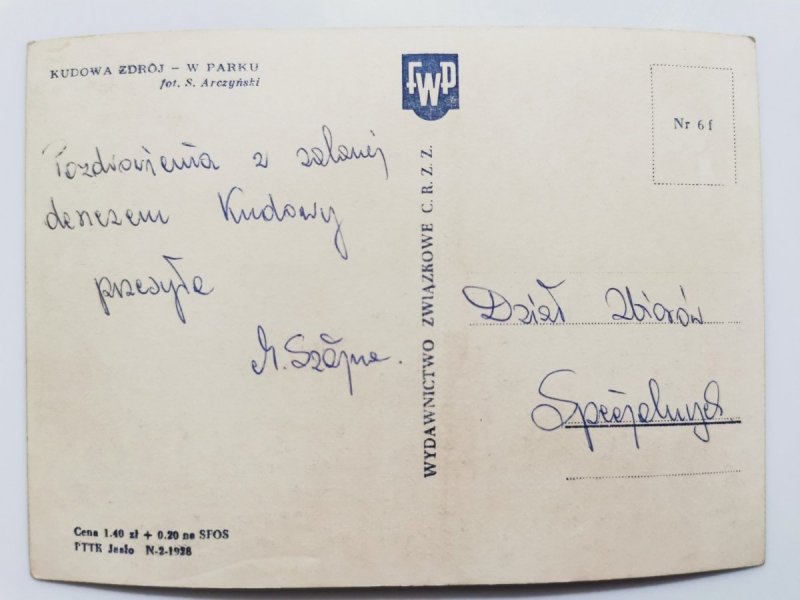 KUDOWA ZDRÓJ – W PARKU
fot. S. Arczyński
Pozdrowienia z zalanej
deszczem Kudowy
przesyła
M. Szajna.
Cena 1.40 zł + 0.20 na SFOS
PTTK Jasło N-2-1938
FWP
WYDAWNICTWO ZWIĄZKOWE C.R.Z.Z.
Nr 6f
Dział Zbiorów
Specjalnych